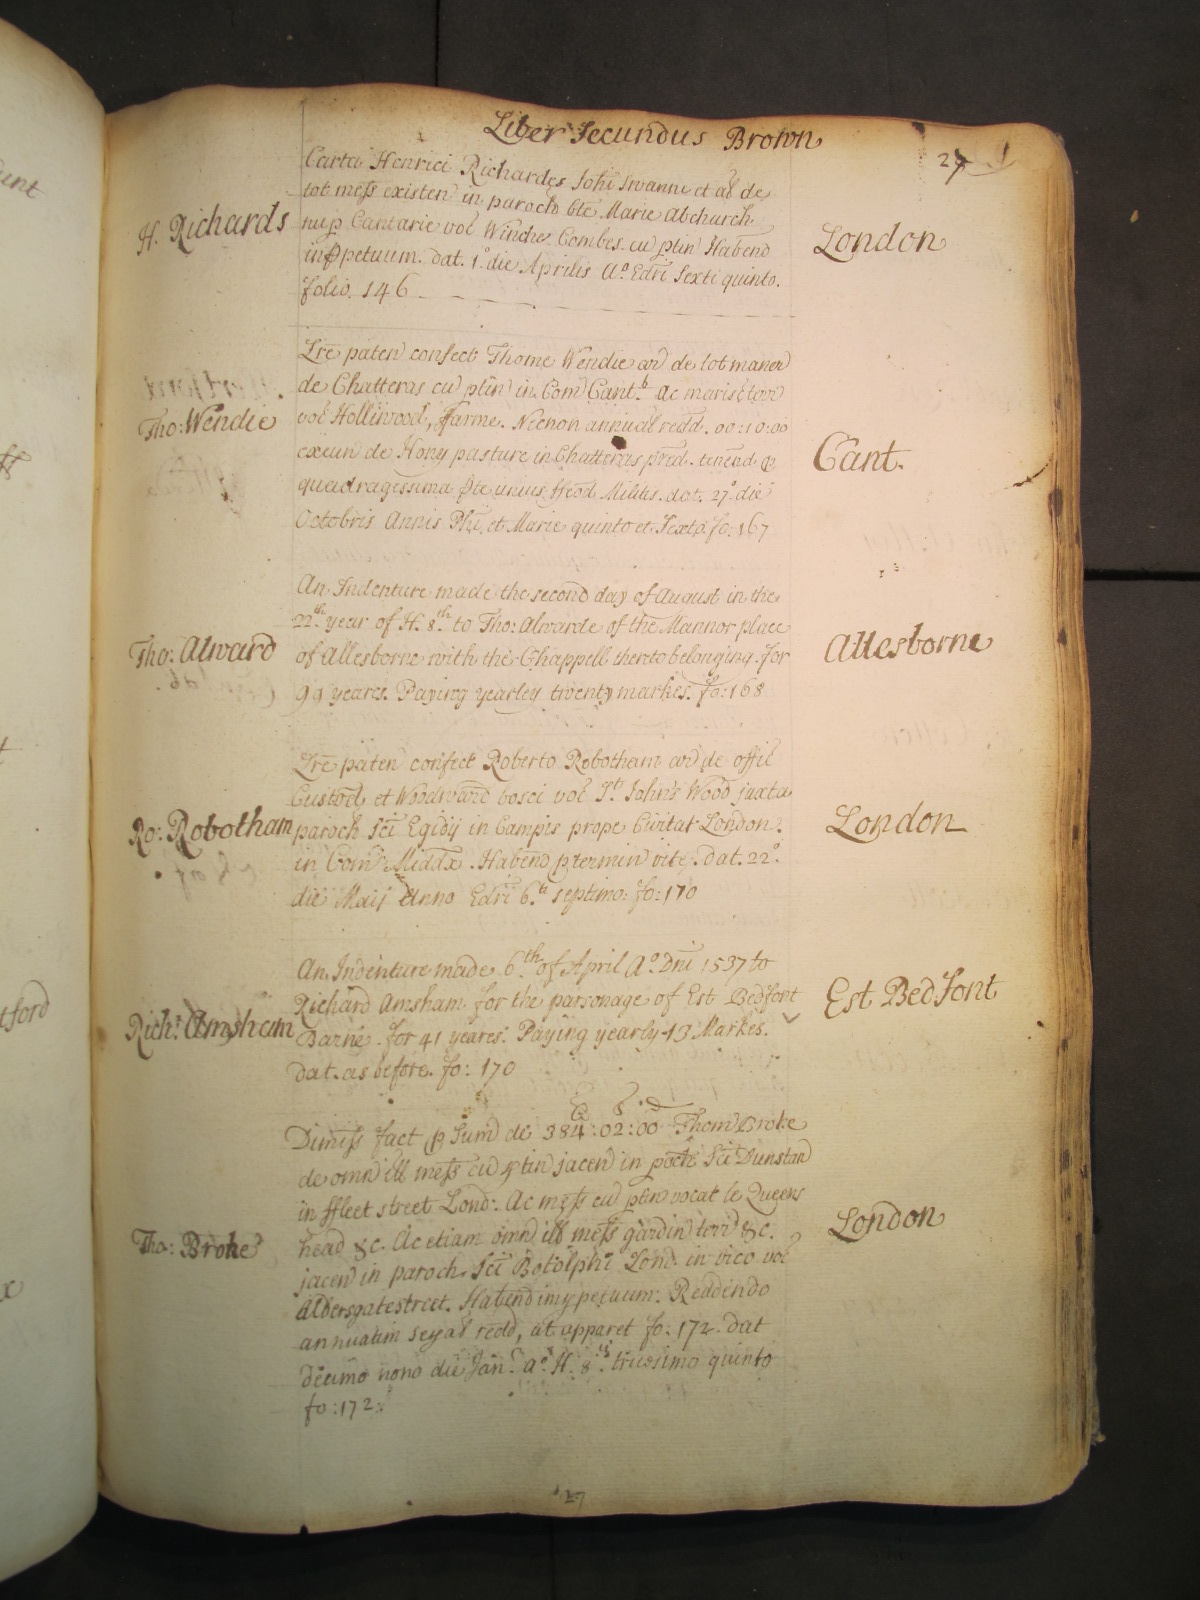 Liber Secundus Brown
27
H. Richards
Carta Henrici Richardes Johi Swanne et al de
tot mess existen in paroch bte Marie Abchurch
nup Cantarie voc Winche Combes cu ptin Habend
in ppetuum. dat. 1o die Aprilis Ao Edri Sexti quinto.
folio. 146
London
Tho: Wendie
Lre paten confect Thome Wendie ar de tot maner
de Chatteras cu ptin in Com Cant. Ac marisc terr
voc Hollinwood, ffarme. Necnon annual redd. 00:10:00
exeun de Hony pasture in Chatteras pred. tenend p
quadragessima pte unius ffeod Militis. dat. 27o die
Octobris Annis Phi et Marie quinto et Sexto. fo: 167
Cant.
Tho: Alward
An Indenture made the second day of August in the
22th year of H. 8th to Tho: Alwarde of the Mannor place
of Allesborne with the Chappell thereto belonging. for
99 yeares. Paying yearley twenty markes. fo: 168
Allesborne
Ro: Robotham
Lre paten confect Roberto Robotham ar de offic
Custod et Woodward bosci voc St. John's Wood juxta
paroch Sci Egidij in Campis prope Civitat London.
in Com Middx. Habend p termin vite. dat. 22o.
die Maij Anno Edri 6ti septimo: fo: 170
London
Rich: Amsham
An Indenture made 6th of April Ao Dni 1537 to
Richard Amsham for the parsonage of Est Bedfont
Barne. for 41 yeares. Paying yearly 13 Markes.
dat. as before. fo: 170
Est Bedfont
Tho: Broke
Dimiss fact p Sum de 384:02:00 Thom Broke
de omn ill mess cu ptin jacen in poch Sci Dunstan
in ffleet street Lond: Ac mess cu ptin vocat le Queens
head &c. Ac etiam omn ill mess gardin terr &c.
jacen in paroch. Sci Botolphi Lond in vico voc
Aldersgatestreet. Habend imppetuum: Reddendo
annuatim sepal redd, ut apparet fo: 172. dat
decimo nono die Jan. ao H. 8. tricesimo quinto
fo: 172:
London